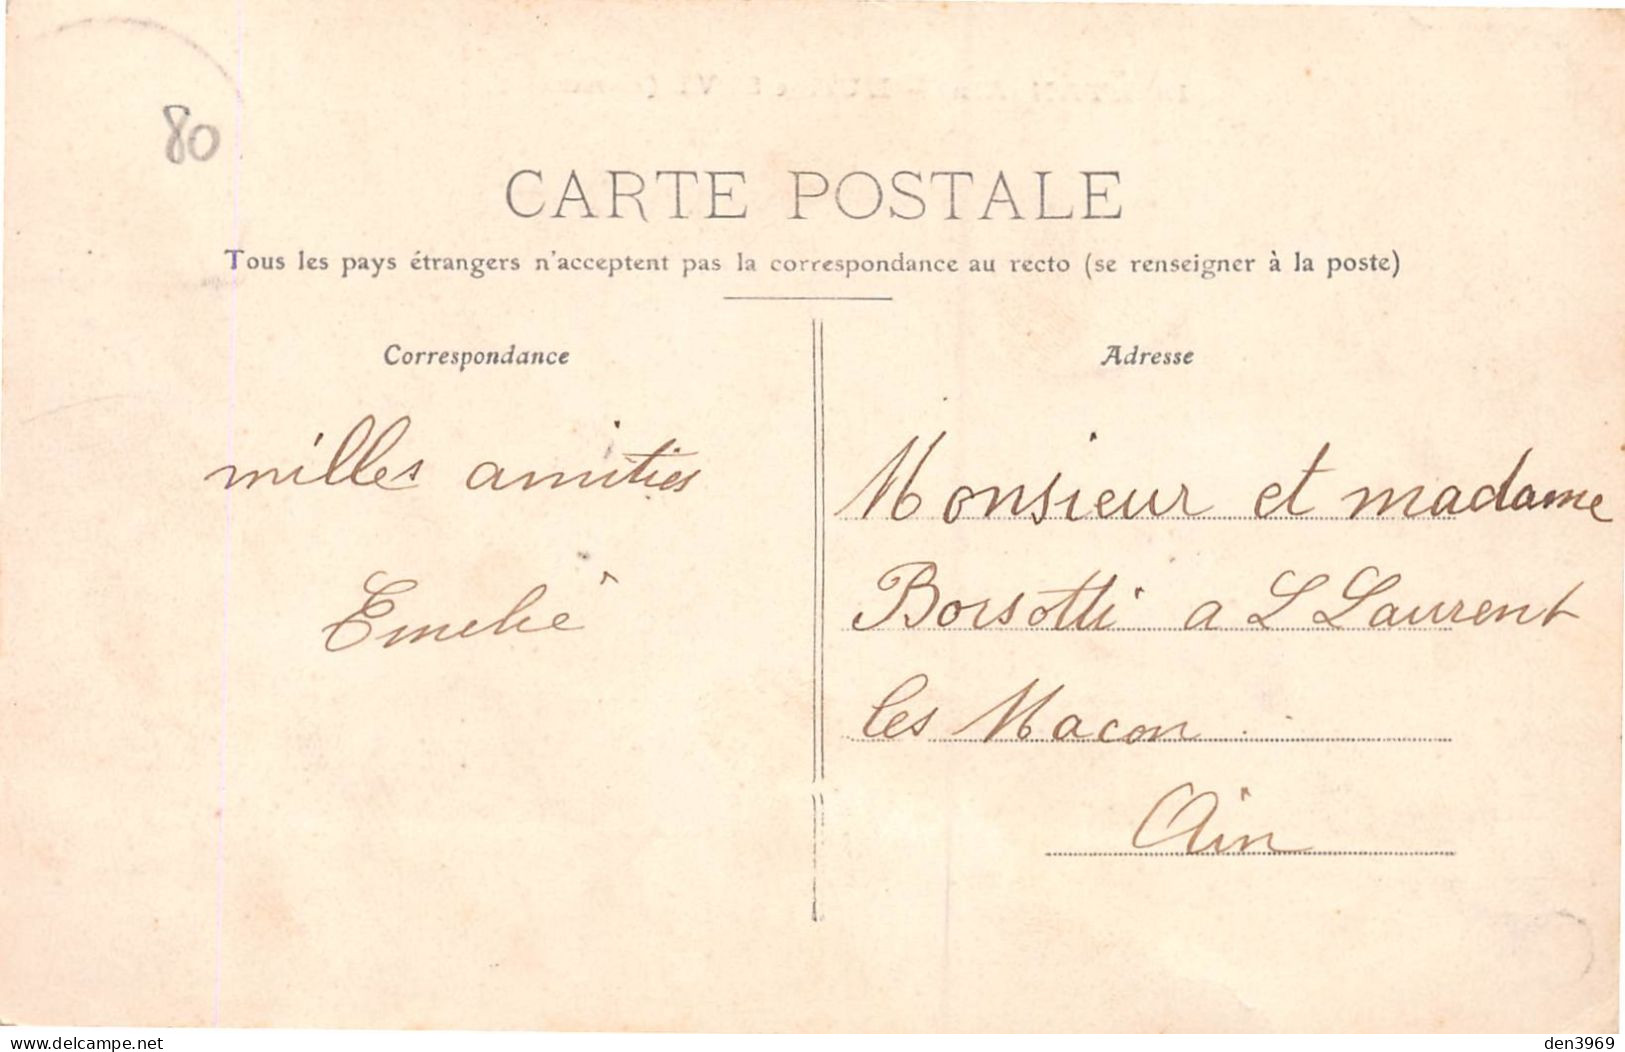 80
CARTE POSTALE
Tous les pays étrangers n'acceptent pas la correspondance au recto (se renseigner à la poste)
Correspondance
milles amities
Emelie
Adresse
Monsieur et madame
Borsotti a S Laurent
les Macon
Ain
den3969